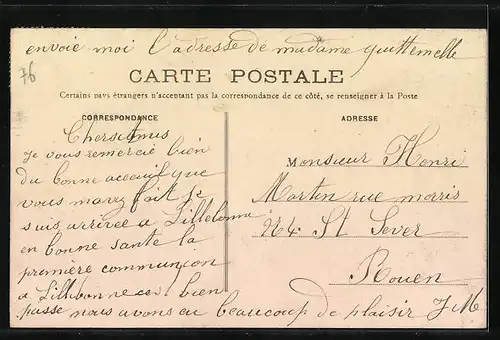 envoie moi l'adresse de madame guittemelle
76
CARTE POSTALE
Certains pays étrangers n'acceptant pas la correspondance de ce côté, se renseigner à la Poste
CORRESPONDANCE
Chersitmis
Je vous remercie bien
du bonne acceuil que
vous mavez fait je
suis arrivée a Lillebonne
en bonne sante la
première communçon
a Lillebonne ces bien
passe nous avons eu beaucoup de plaisir J M
ADRESSE
Monsieur Henri
Martin rue morris
N 4 St Sever
Rouen